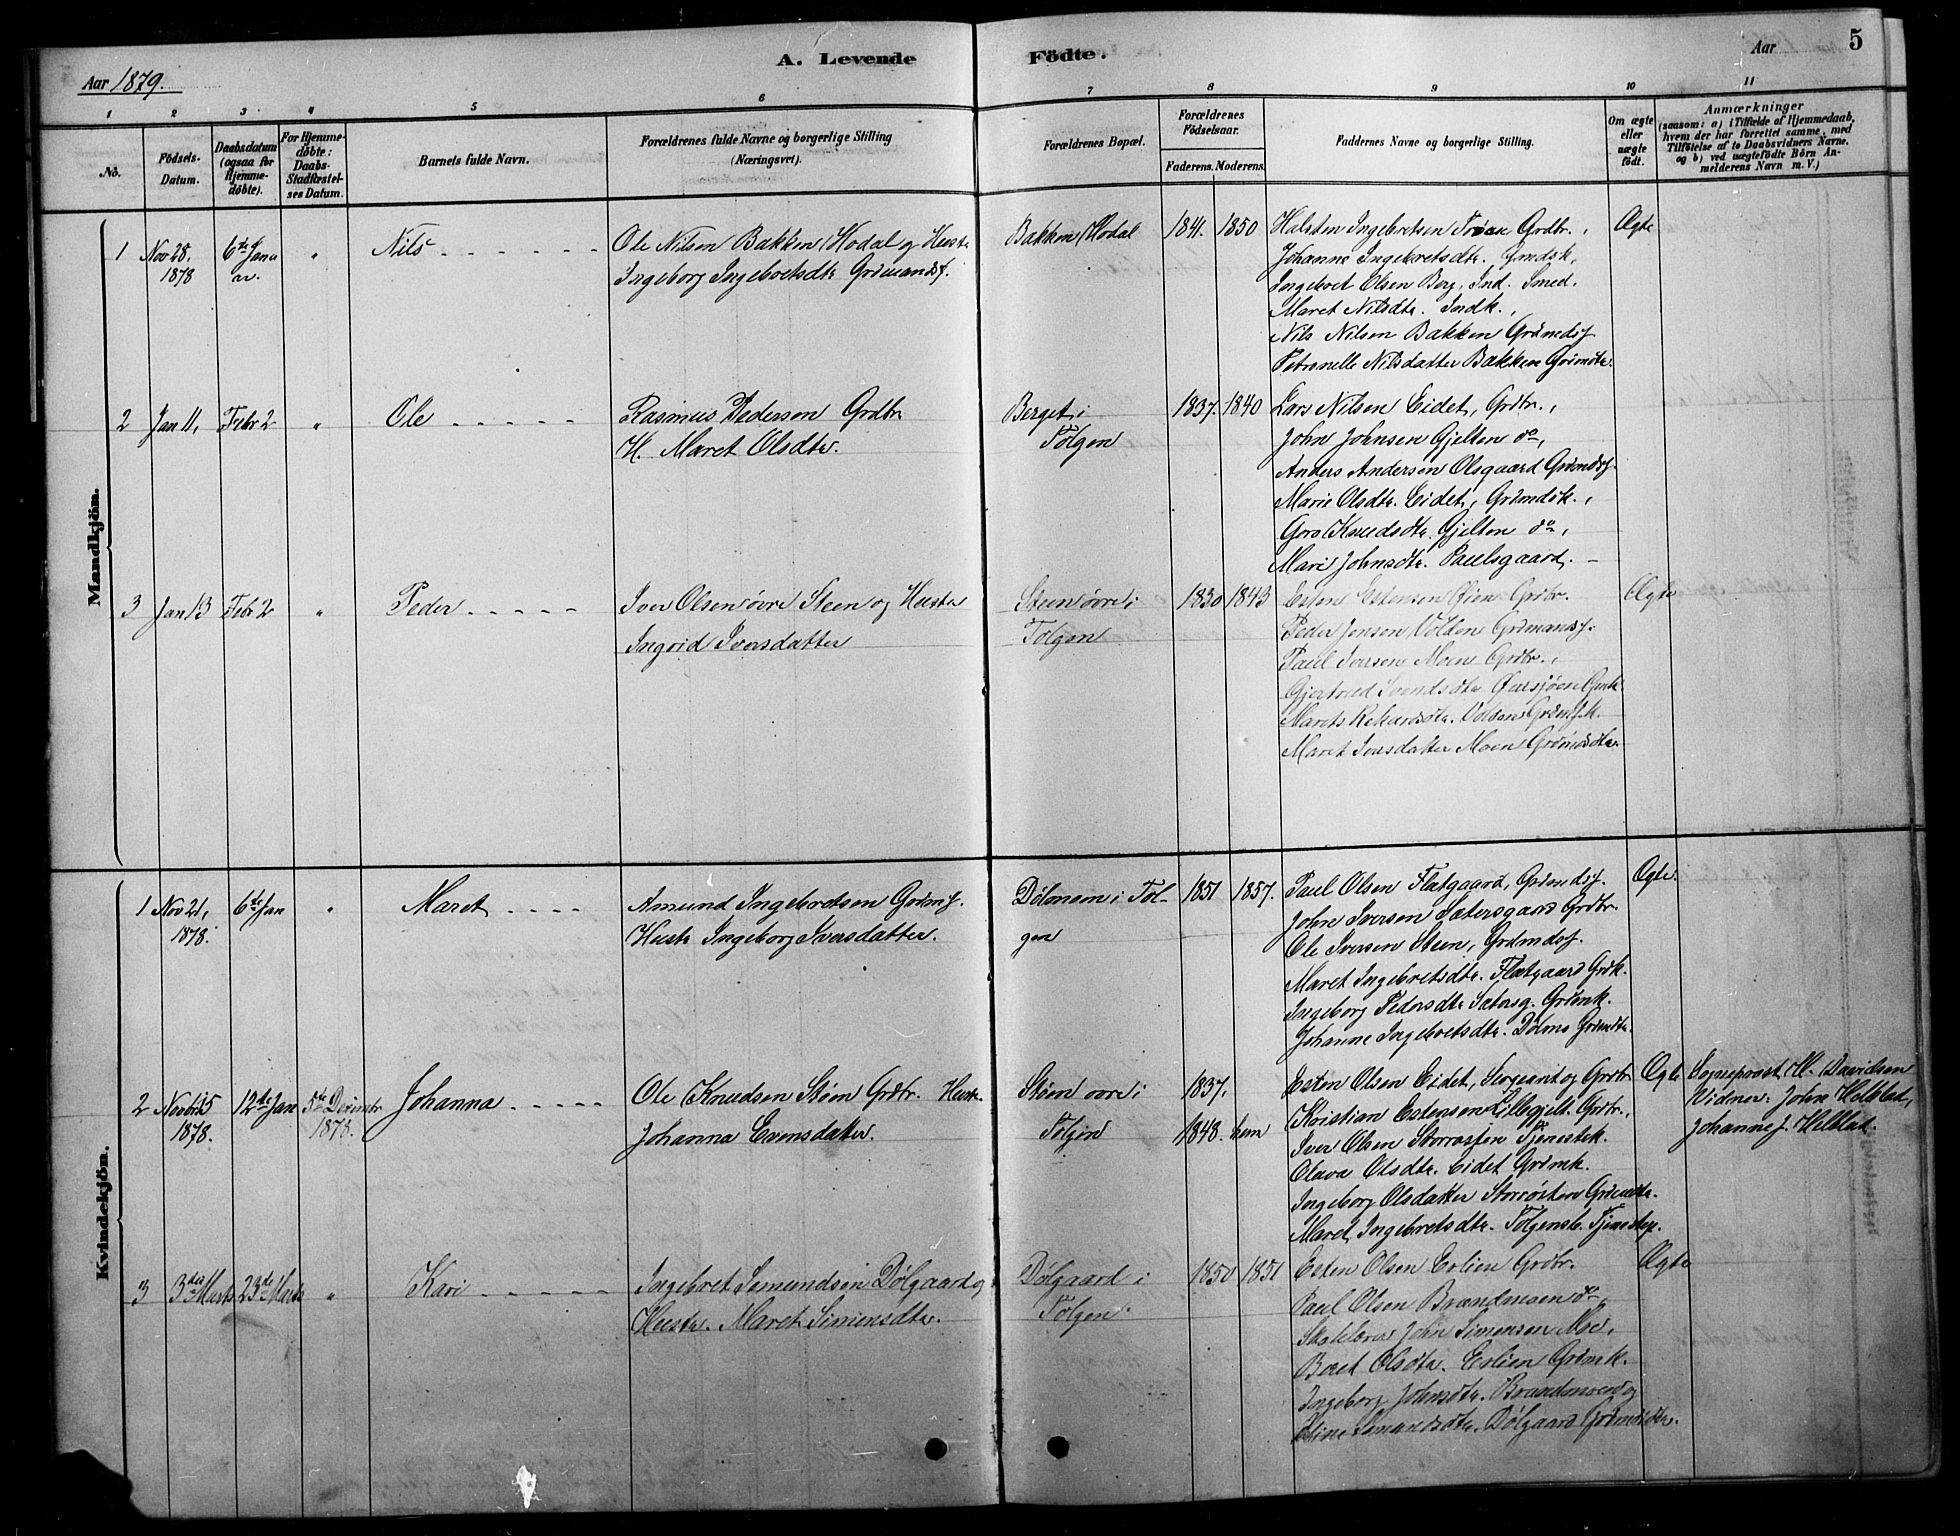 Aar 1879.
A. Levende
Födte.
Aar
5
1 2 3 4 5 6 7 8 9 10 11
No.
Födsels-
Datum.
Daabsdatum
(ogsaa for
Hjemme-
döbte).
For Hjemme-
döbte:
Daabs-
Stadfæstel-
ses Datum.
Barnets fulde Navn.
Forældrenes fulde Navne og borgerlige Stilling
(Næringsvei).
Forældrenes Bopæl.
Forældrenes
Födselsaar.
Faderens. Moderens.
Faddernes Navne og borgerlige Stilling.
Om ægte
eller
uægte
födt.
Anmærkninger
(saasom: a) i Tilfælde af Hjemmedaab,
hvem der har forrettet samme, med
Tilföielse af to Daabsvidners Navne,
og b) ved uægtefödte Börn An-
melderens Navn m. V.)
Mandkjön.
1
Nov 28,
1878
6te Janu
"
Nils
Ole Nilsen Bakken Hodal og Hustr
Ingeborg Ingebretsdtr Grdmandsf.
Bakken Hodal
1841. 1850
Halsten Ingebretsen Trøen Grdbr.,
Johanne Ingebretsdtr. Grmdsk.
Ingebret Olsen Borg, Ind. Smed.
Maret Nilsdtr. Indk.,
Nils Nilsen Bakken Grdmdsf
Petronelle Nilsdatter Bakken Grdmdtr.
Ægte
2
Jan 11,
Febr 2
"
Ole
Rasmus Pedersen Grdbr
H. Maret Olsdtr.
Berget i
Tolgen
1837. 1840
Lars Nilsen Eidet, Grdbr.,
John Johnsen Gjelten do,
Anders Andersen Olsgaard Grdmdsf.
Marie Olsdtr. Eidet, Grdmdsk.,
Goro Knudsdtr. Gjelten do,
Mari Johnsdtr. Paulsgaard. –
3
Jan 13
Febr 2
"
Peder
Iver Olsen øvre Steen og Hustr
Ingrid Iversdatter
Steen øvre i
Tolgen
1830 1843
Esten Estensen Øien Grdbr.
Peder Jonsen Volden Grdmandsf.
Paul Iversen Moen Grdbr.,
Gjertrud Svendsdtr
Maret Iversdatter Moen Grdmdsdtr.
Ægte
Kvindekjön.
1
Nov 21,
1878.
6te Jan
"
Maret
Amund Ingebretsen Grdmf.
Hustr Ingeborg Iversdatter.
Dölmoen i Tol-
gen
1851 1857.
Paul Olsen Flatgaard, Grdmdsf.
John Iversen Sætersgaard Grdbr.
Ole Iversen Steen, Grdmdsf.
Maret Ingebretsdtr. Flatgaard Grdk.
Ingeborg Pedersdtr Sætersg. Grdmk.
Johanne Ingebretsdtr. Dölmo Grdmdtr.
Ægte.
2
Novbr 15
1878.
12te Jan
5te Decembr
1878.
Johanna
Ole Knudsen Steen Grdbr. Hustr.
Johanna Evensdatter.
Steen øvre i
Tolgen
1837.
1848.
Esten Olsen Eidet, Sergeant og Grdbr
Kristian Estensen Lillegjelt. Grdbr.,
Iver Olsen Storrøsten Tjenestek.
Olava Olsdtr. Eidet Grdmk.
Ingeborg Olsdatter Storrøsten Grdmdtr.
Maret Ingebretsdtr. Tolgensb. Tjenestep.
Ægte
Sogneprest W. Davidsen
Vidner: John Helblad,
Johanne J. Helblad.
3
3die Marts
23de Marts
"
Kari
Ingebret Semundsen Dølgaard og
Hustr. Maret Simensdtr.
Dølgaard i
Tolgen
1850 1851
Esten Olsen Erlien Grdbr.
Paul Olsen Brændmoen do
Skolelærer John Simensen Moe,
Beret Olsdtr. Erlien Grdmk.
Ingeborg Johnsdtr. Brændmoen og
Semundsdtr. Dølgaard Grdmdsdtr.
Ægte